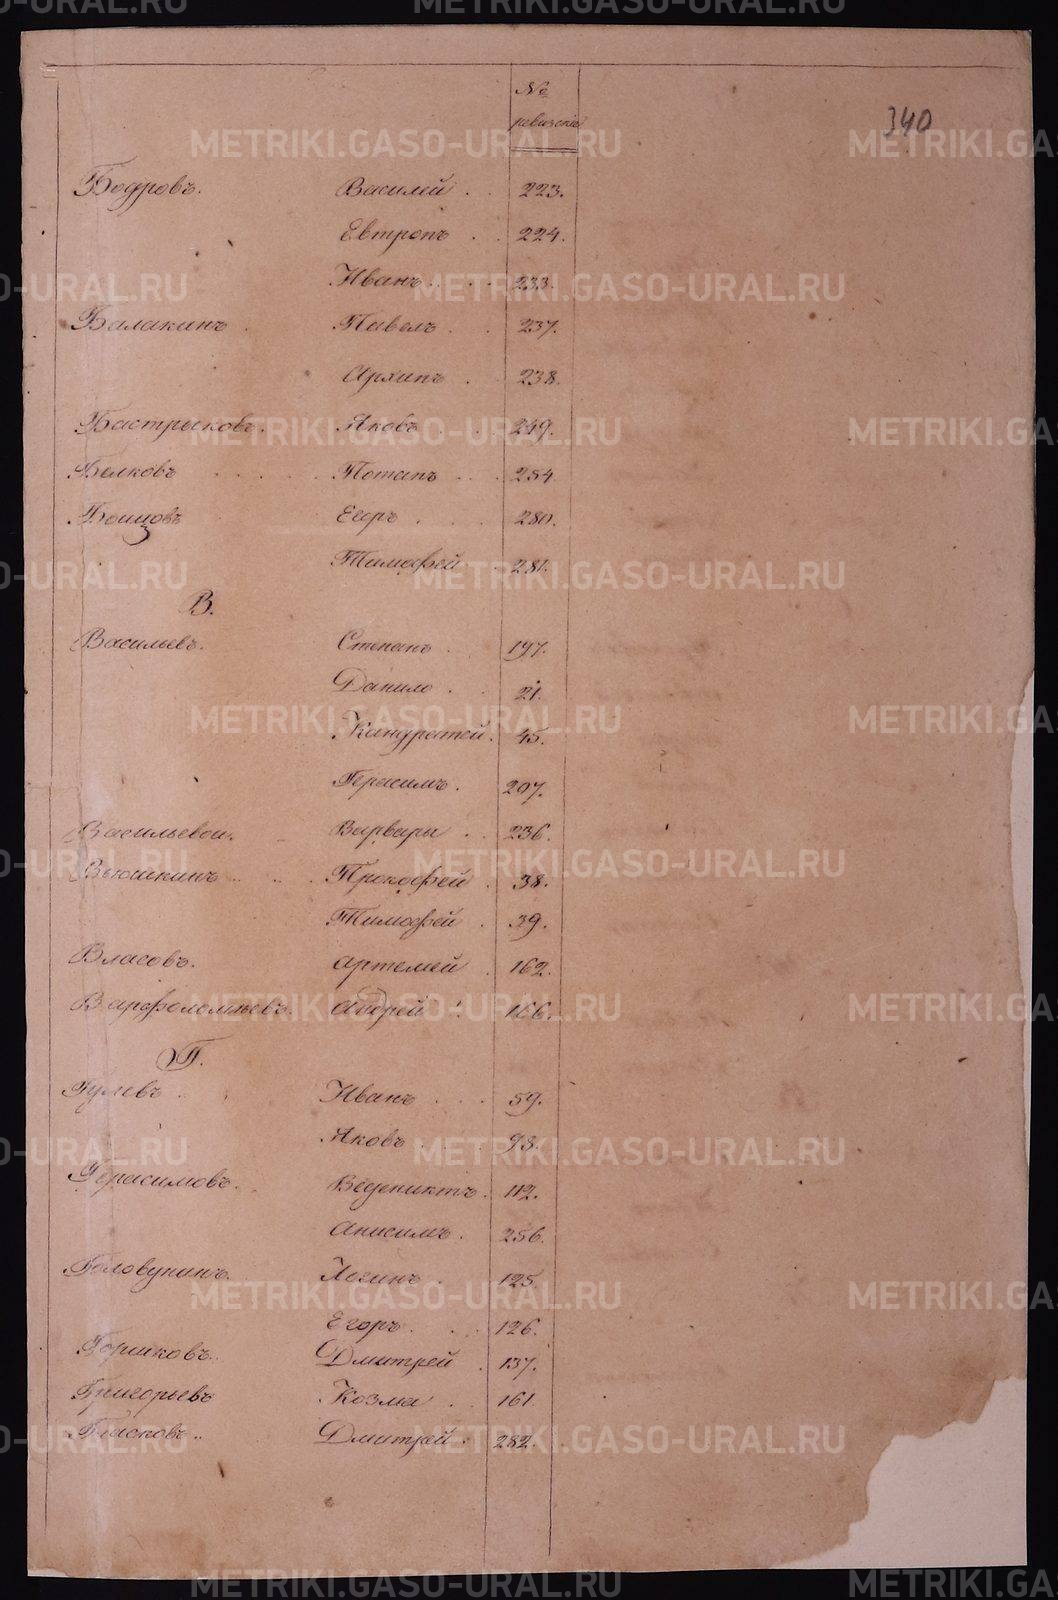 340
№
ревизскіе
Бодровъ. Василей . . 223.
Евтропъ . . 224.
Иванъ . . . 233.
Балакинъ . Павелъ . . 237.
Архипъ . . 238.
Бастрыковъ. Яковъ . . . 249.
Белковъ . . . . . Потапъ . . . 254
Боицовъ Егоръ . . . 280.
Тимофей . 281.
В.
Васильевъ. Степанъ . . 197.
Данило . . 21.
Кандратей. 45.
Герасимъ. 207.
Васильевои. Варвары . . 236.
Вьюшкинъ . . . . Прокофей . 38.
Тимофей . 39.
Власовъ. артемей . 162.
Варфоломѣевъ. андрей . . 166.
Г.
Гулевъ . Иванъ . . . 59.
Яковъ . . . 93.
Герасимовъ. Ведениктъ. 112.
анисимъ . 256.
Головунинъ. Логинъ . . 125.
Егоръ . . . 126.
Горшковъ.. Дмитрей . 137.
Григорьевъ Козма . . 161.
Гласковъ .. Дмитрей . 282.
METRIKI.GASO-URAL.RU